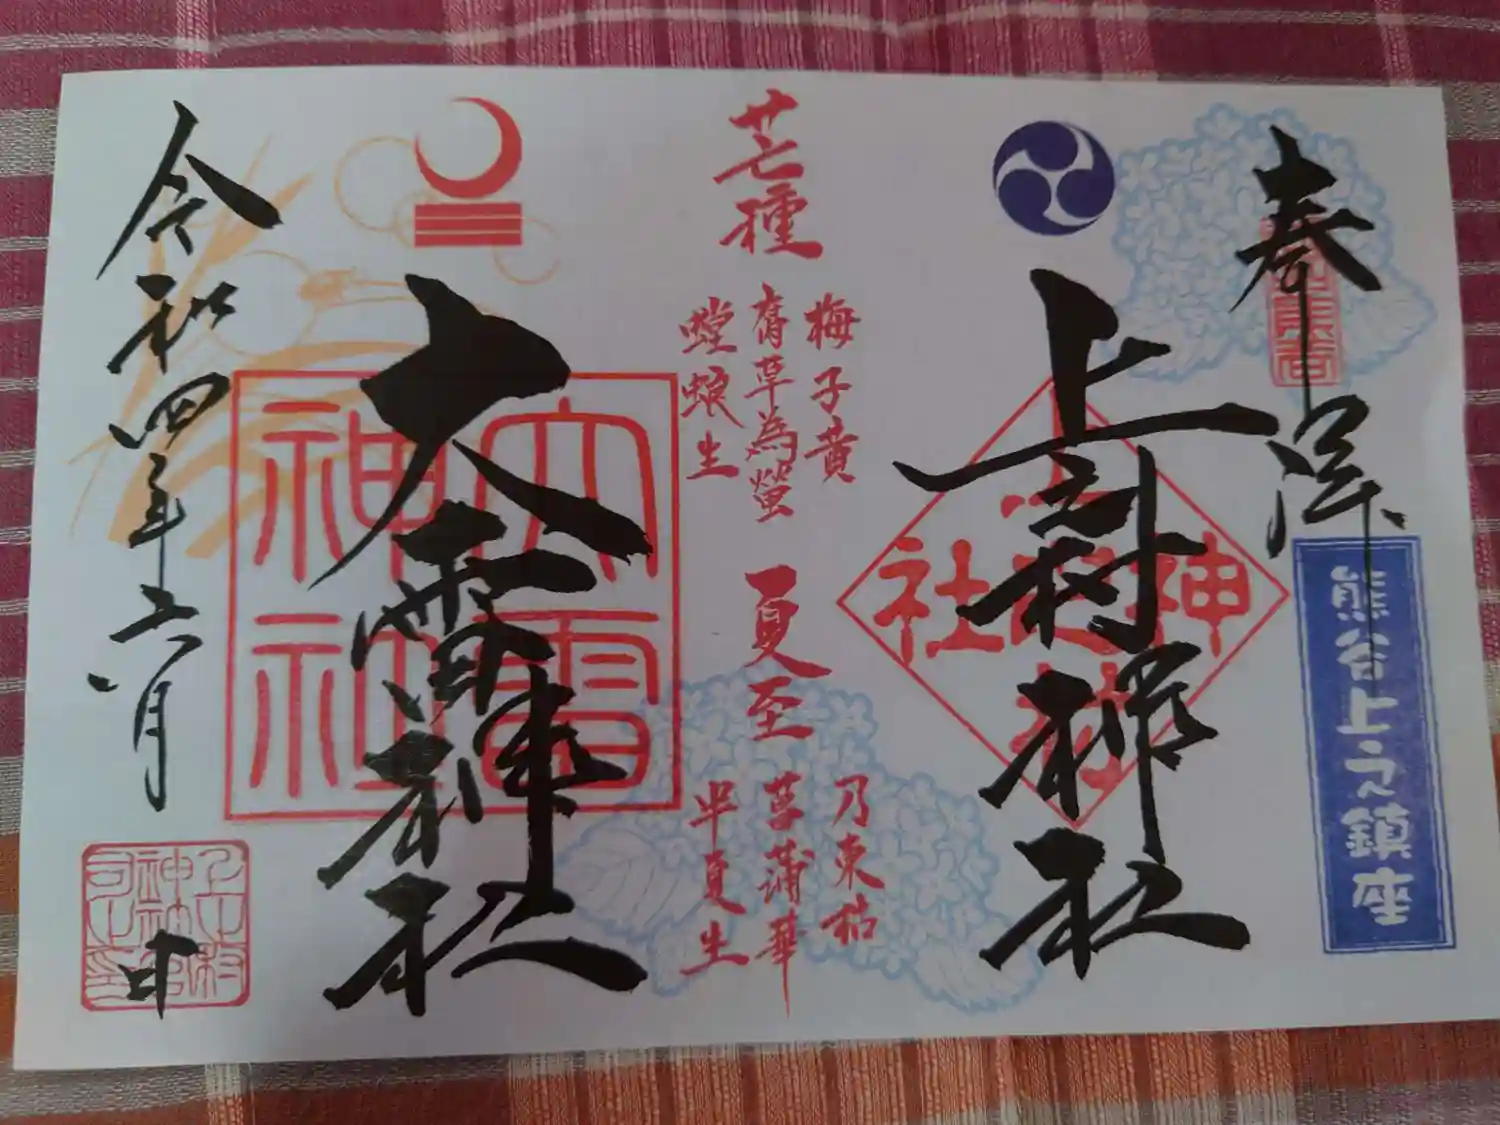 奉拝
熊谷上之鎮座
上之村神社
神社
芒種
梅子黄
腐草為螢
螳螂生
夏至
乃東枯
菖蒲華
半夏生
大雷神社
大雷
神社
令和四年六月
中